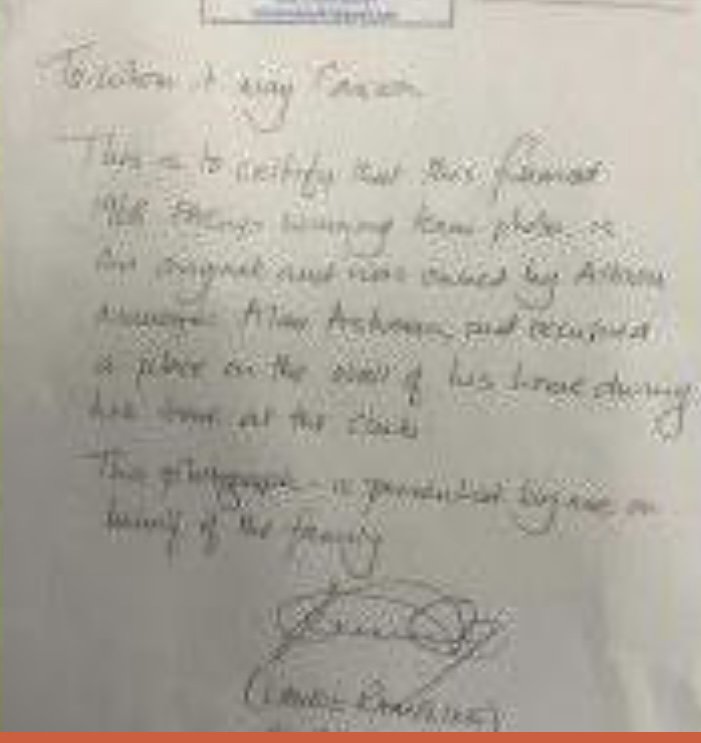 To whom it may Concern
This is to certify that this framed
1968 winning team photo is
an original and was owned by Albion
manager Alan Ashman, and occupied
a place on the wall of his home during
his time at the club
This photograph is presented by me on
behalf of the family